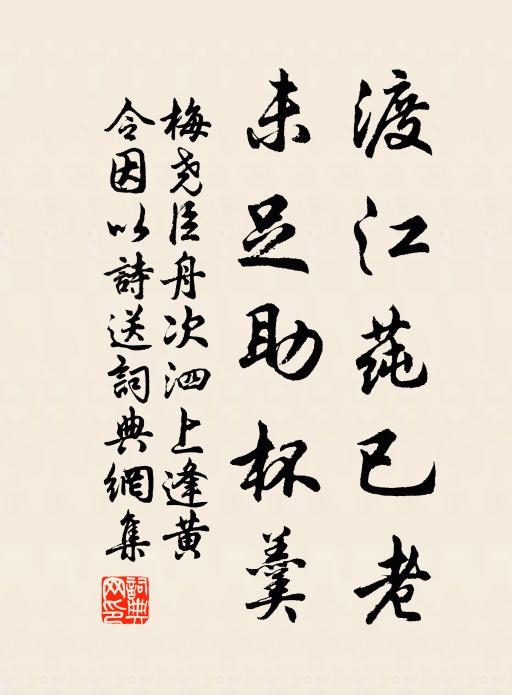 渡江莼已老
未足助杯羹
梅尧臣舟次泗上逢黄
令因以詩送詞典網集